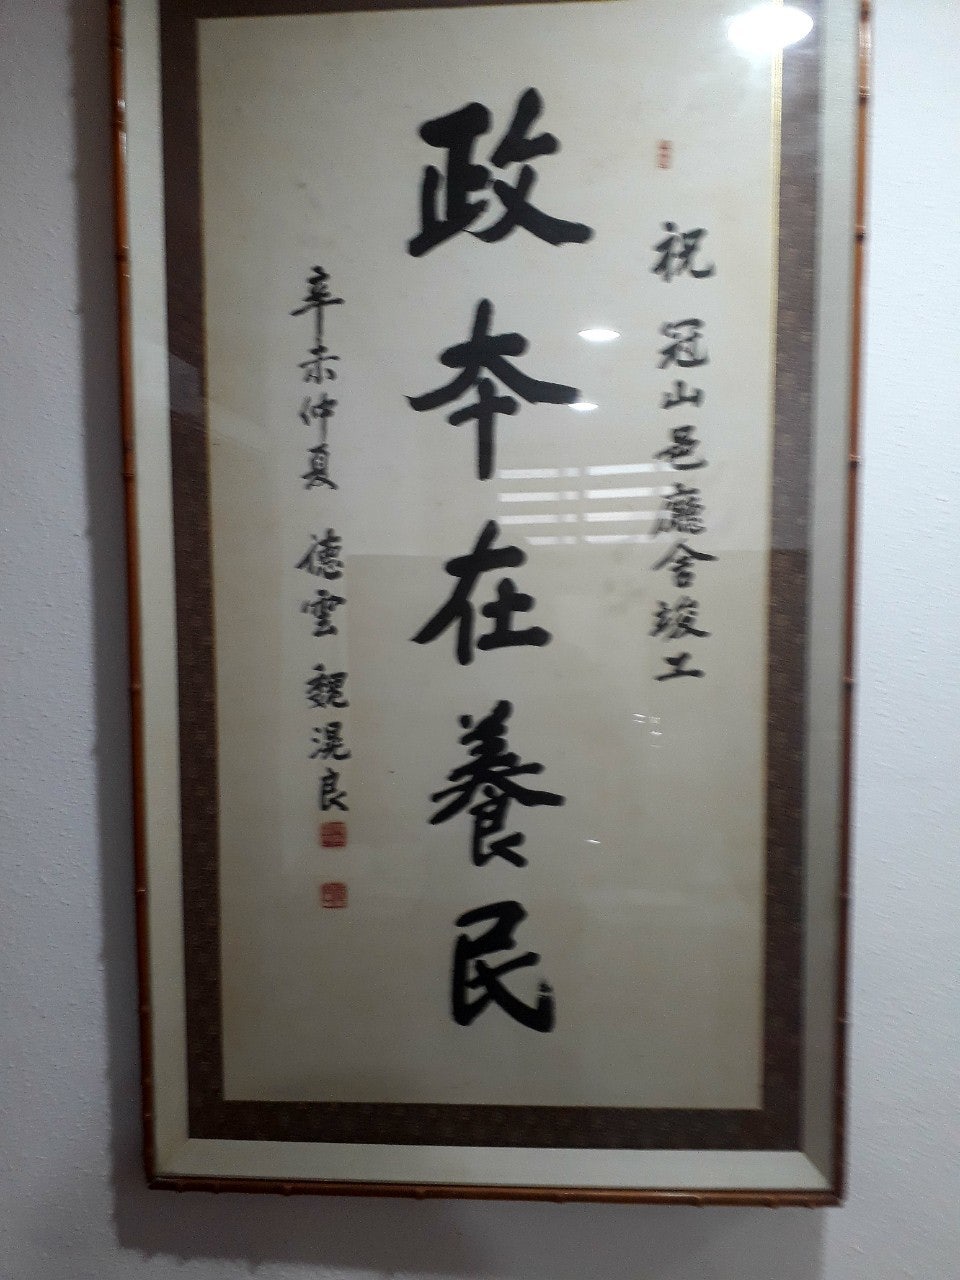 祝 冠山邑廳舍竣工
政本在養民
辛未仲夏 德雲 魏滉良